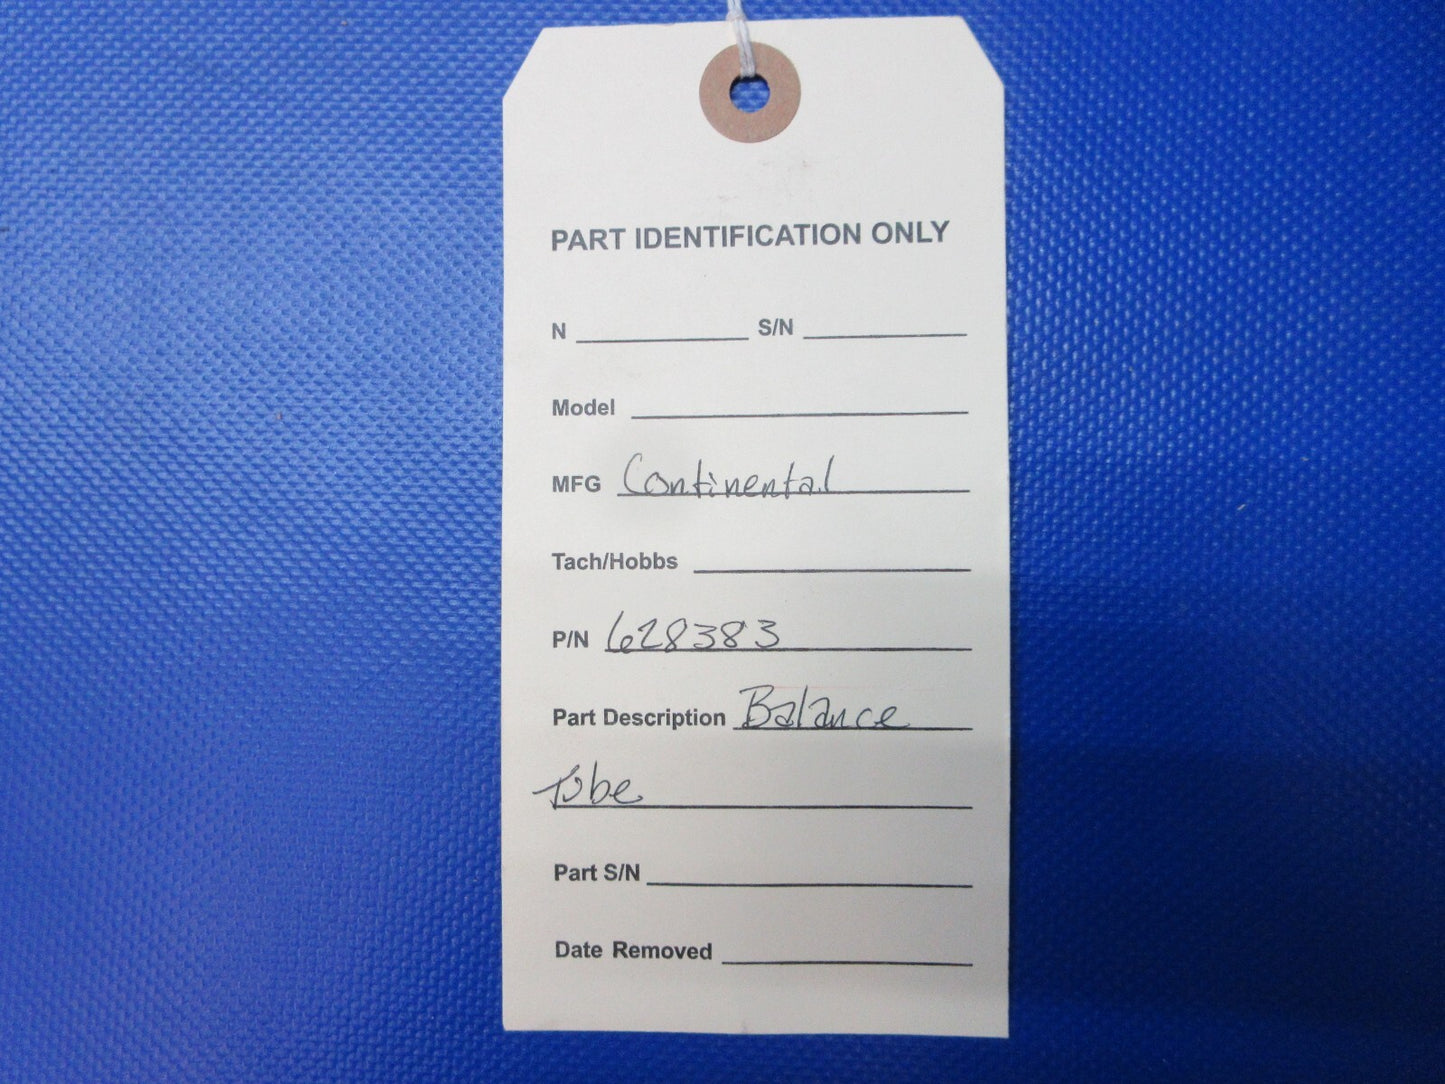 PART IDENTIFICATION ONLY
N S/N
Model
MFG Continental
Tach/Hobbs
P/N 628383
Part Description Balance
Tube
Part S/N
Date Removed